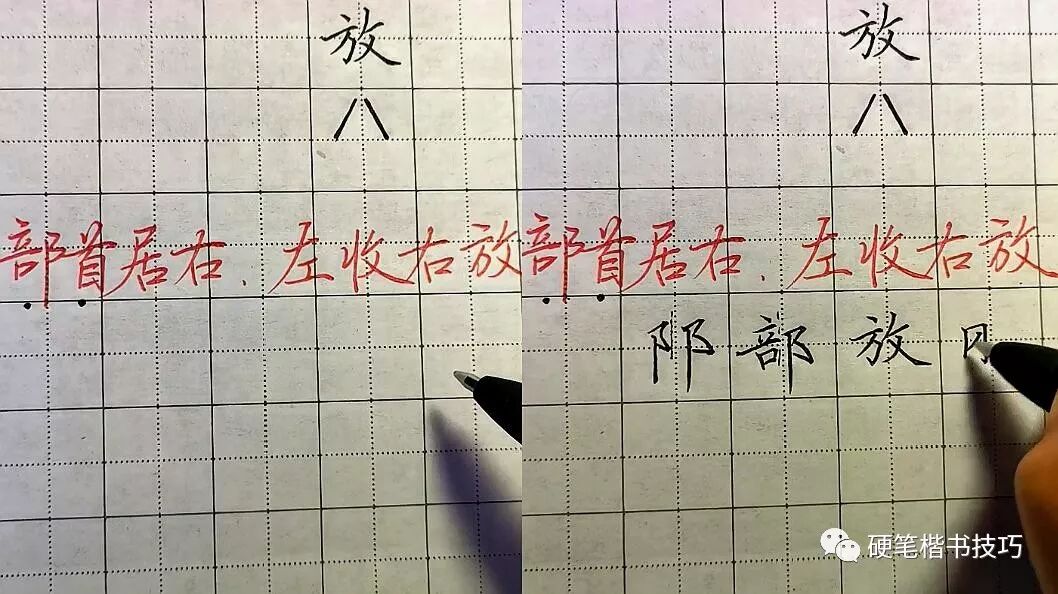 放
部首居右、左收右放
放
部首居右、左收右放
阝阝 部 放
硬笔楷书技巧